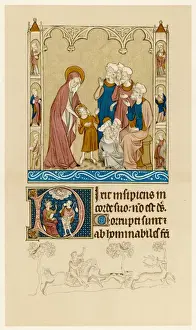 Dixit insipiens in
corde suo: nō est ds̄.
Corrupti sunt &
abhominabiles